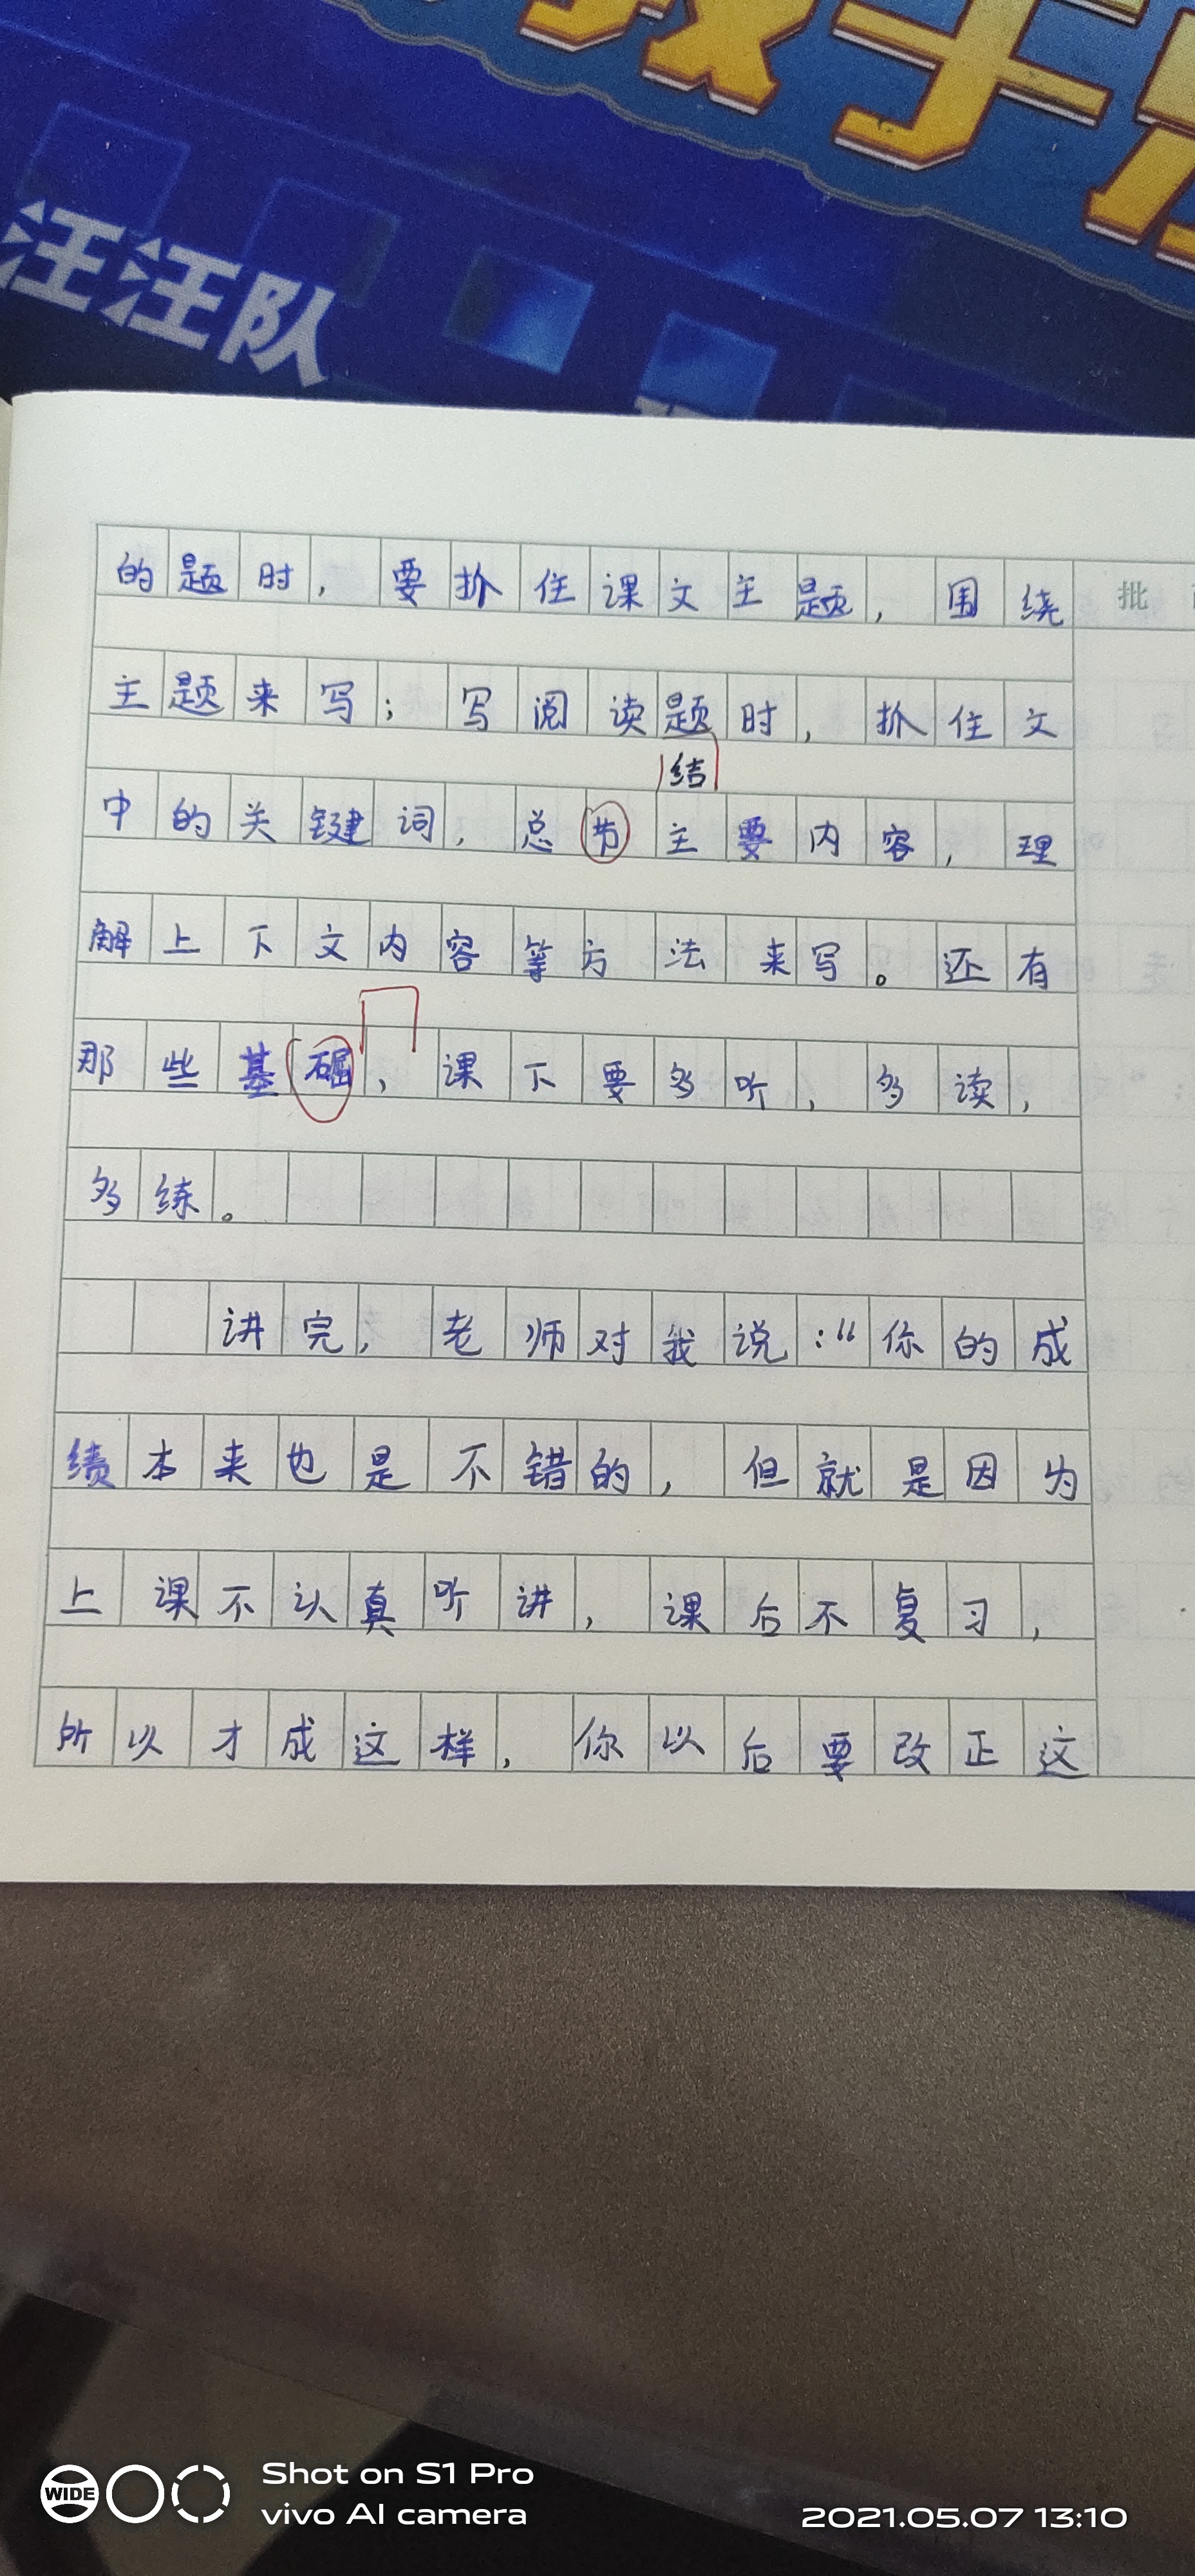 汪汪队
的题时，要抓住课文主题，围绕
批
主题来写；写阅读题时，抓住文
结
中的关键词，总节主要内容，理
解上下文内容等方法来写。还有
那些基础，课下要多听，多读，
多练。
讲完，老师对我说：“你的成
绩本来也是不错的，但就是因为
上课不认真听讲，课后不复习，
所以才成这样，你以后要改正这
WIDE
Shot on S1 Pro
vivo AI camera
2021.05.07 13:10